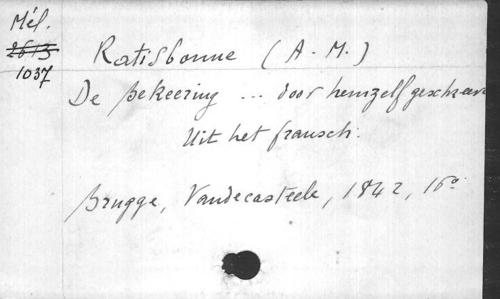 Mél.
2613
1037
Ratisbonne (A. M.)
De Bekeering ... door hemzelf geschreven
Uit het fransch.
Brugge, Vandecasteele, 1842, 16°